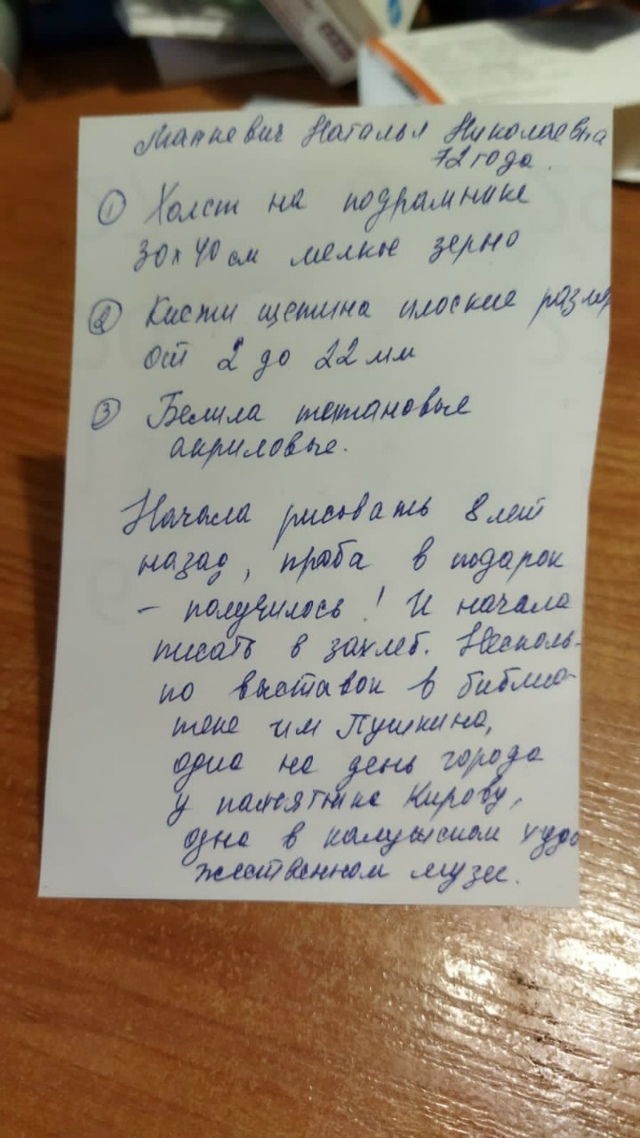 Наталья Николаевна
72 года.
① Холст на подрамнике
30х40 см мелкое зерно
② Кисти щетина плоские размер
от 2 до 22 мм
③ Белила титановые
акриловые.
Начала рисовать 8 лет
назад, проба в подарок
- получилось! И начала
писать в захлеб. Несколь-
ко выставок в библио-
теке им Пушкина,
одна на день города
у памятника Кирову,
одна в калужском худо
жественном музее.